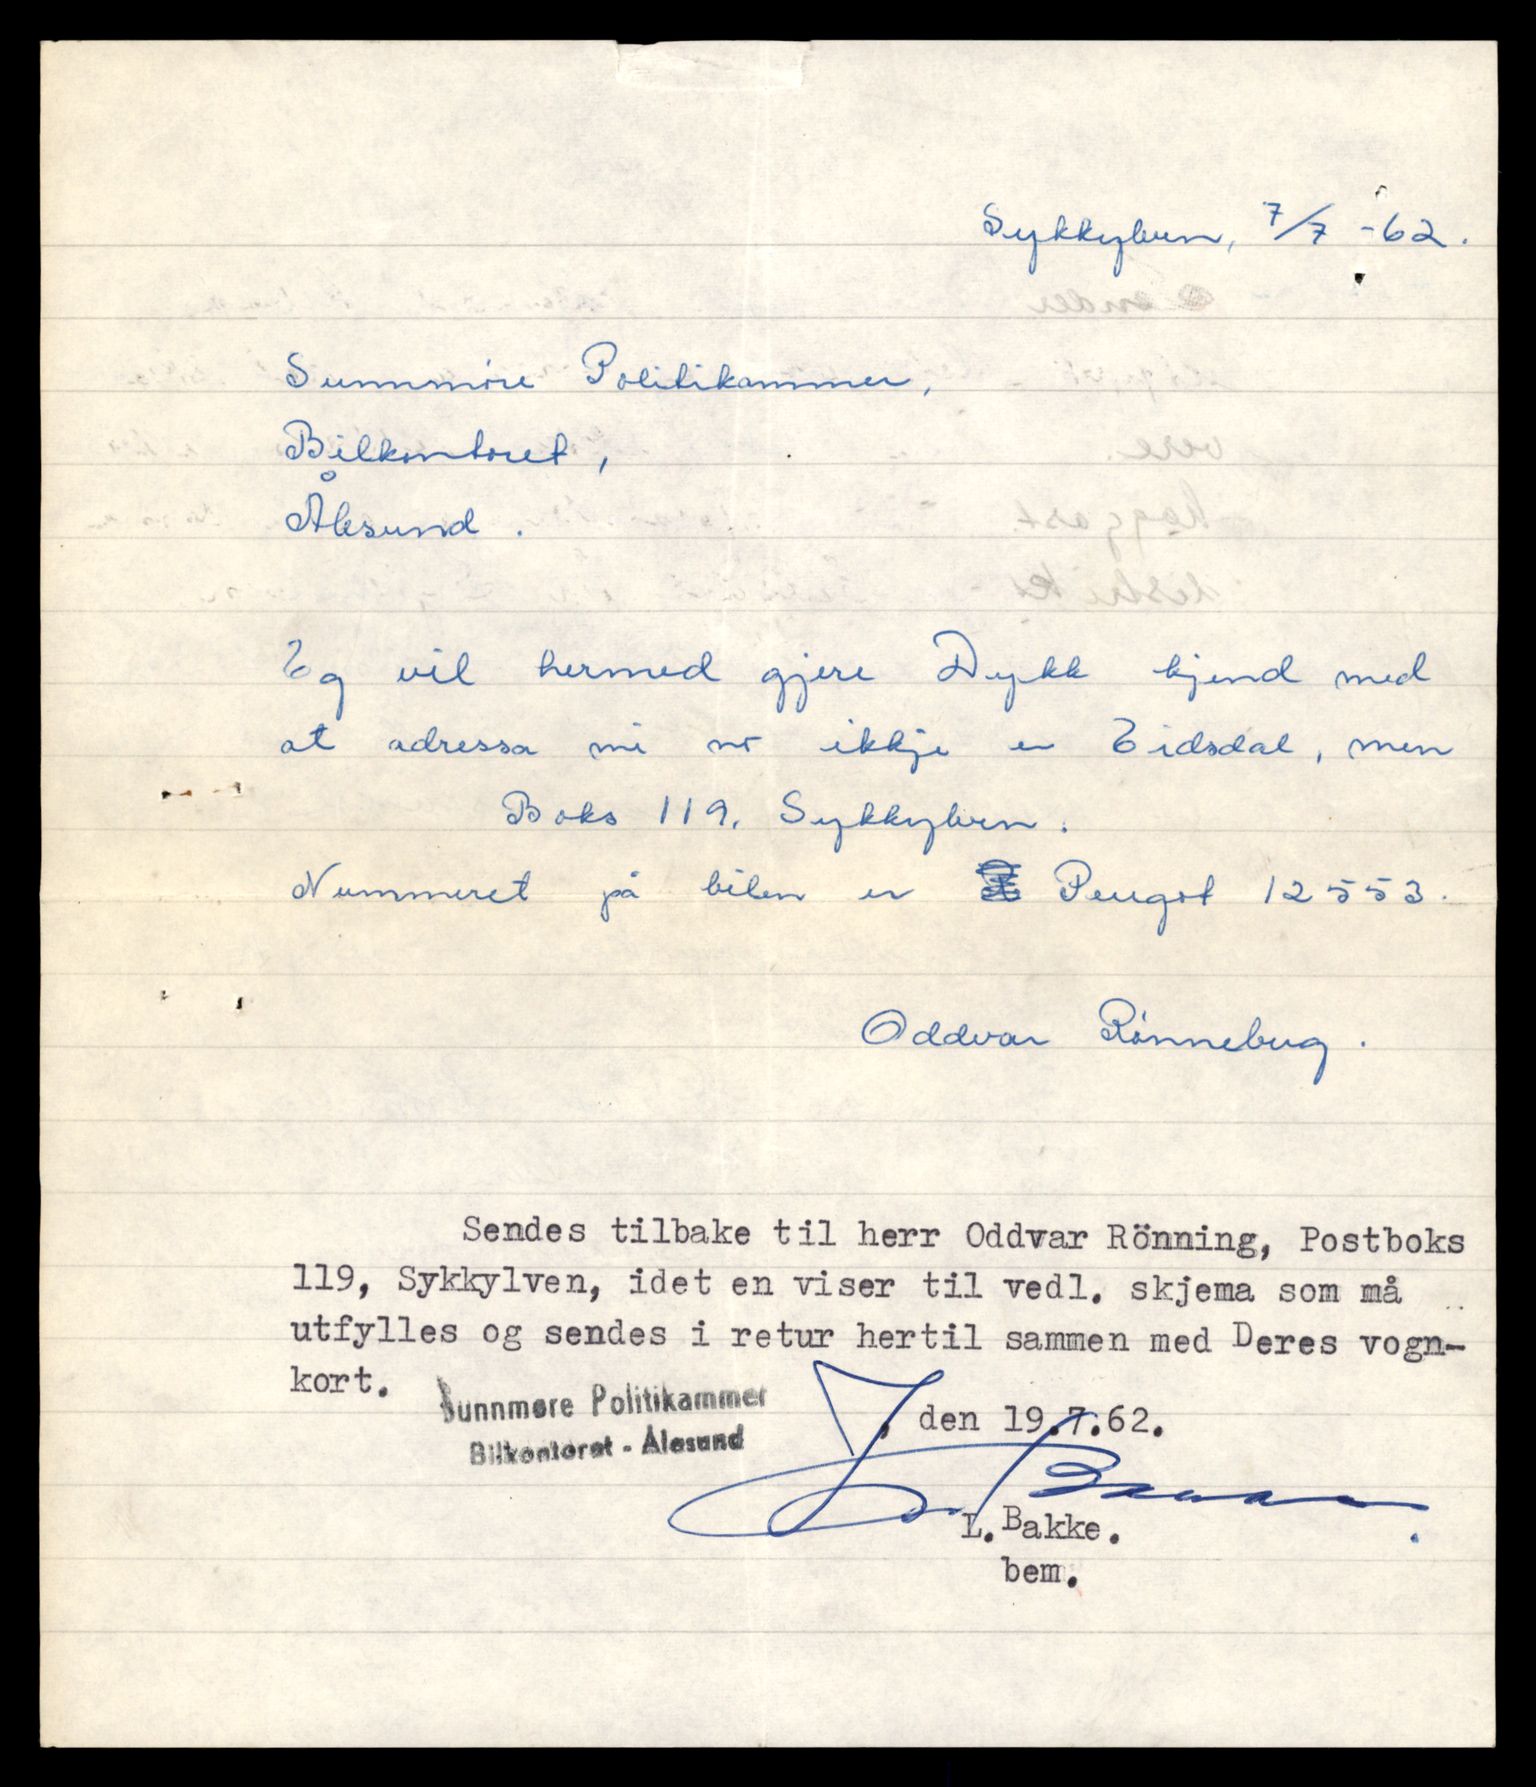 Sykkylven, 7/7 -62.
Sunnmøre Politikammer,
Bilkontoret,
Ålesund.
Eg vil hermed gjere Dykk kjend med
at adressa mi no ikkje er Eidsdal, men
Boks 119, Sykkylven.
Nummeret på bilen er Peugot 12553.
Oddvar Rønneberg.
Sendes tilbake til herr Oddvar Rönning, Postboks
119, Sykkylven, idet en viser til vedl. skjema som må
utfylles og sendes i retur hertil sammen med Deres vogn-
kort.
Sunnmøre Politikammer
Bilkontoret - Ålesund
, den 19.7.62.
L. Bakke.
bem.